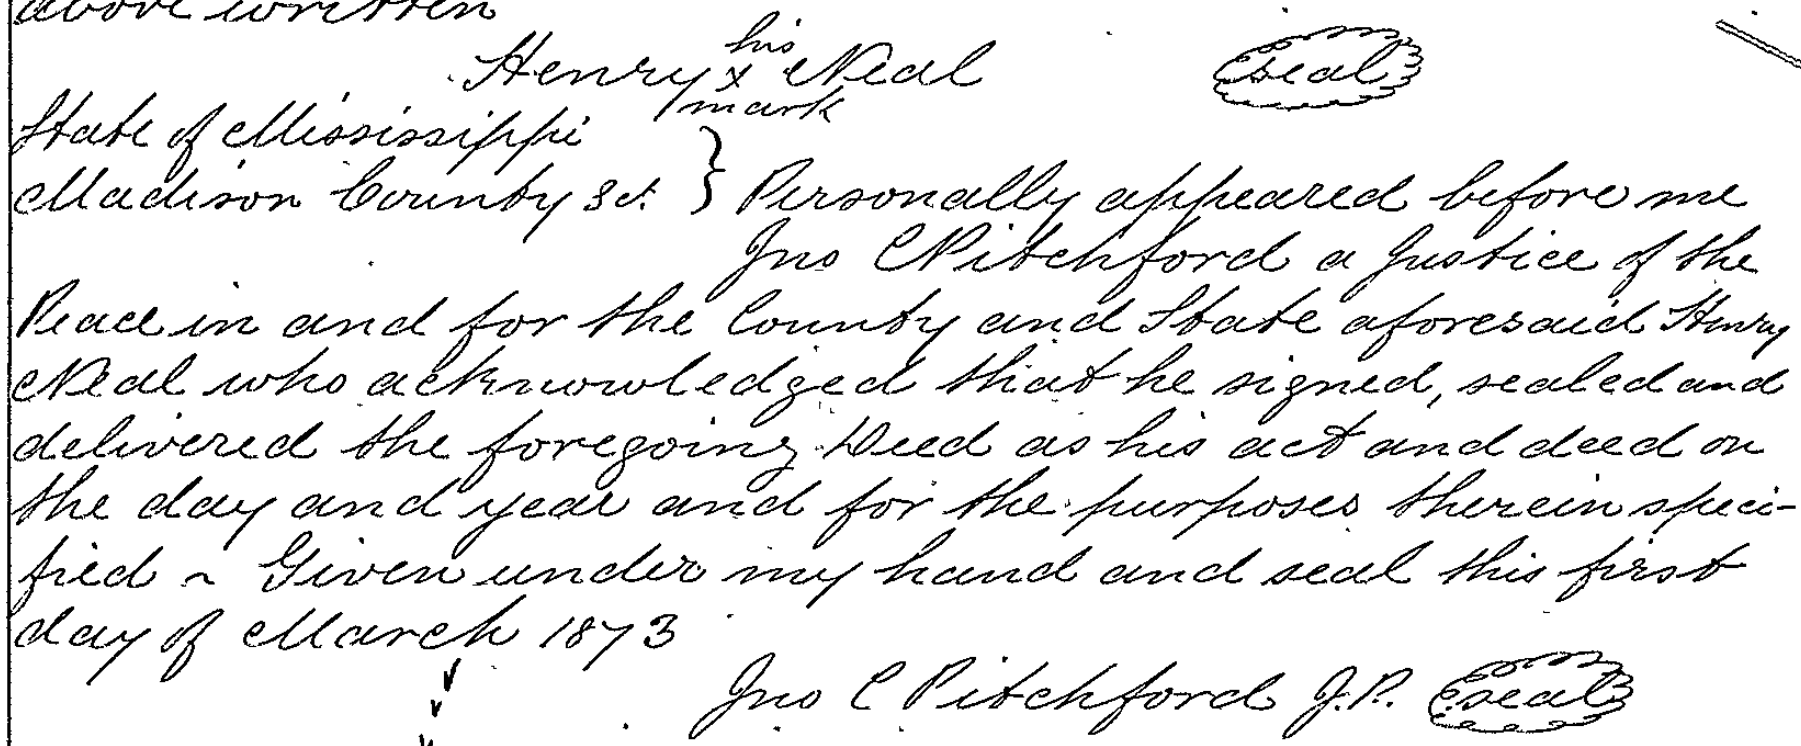 above written
his
Henry x Neal seal
mark
State of Mississippi
Madison County Sct. } Personally appeared before me
Jno C Pitchford a Justice of the
Peace in and for the County and State aforesaid Henry
Neal who acknowledged that he signed, sealed and
delivered the foregoing Deed as his act and deed on
the day and year and for the purposes therein speci-
fied ~ Given under my hand and seal this first
day of March 1873
Jno C Pitchford J.P. seal